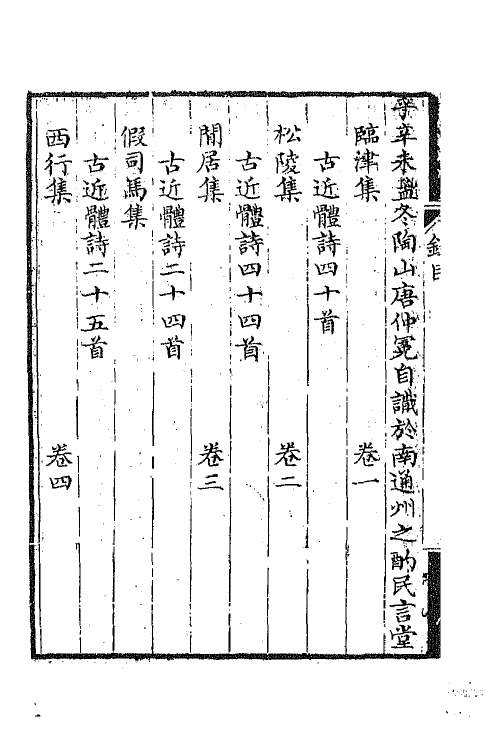 乎辛未孟冬陶山唐仲冕自識於南通州之酌民言堂
臨津集 卷一
古近體詩四十首
松陵集 卷二
古近體詩四十四首
閒居集 卷三
古近體詩二十四首
假司馬集
古近體詩二十五首
西行集 卷四
錄目